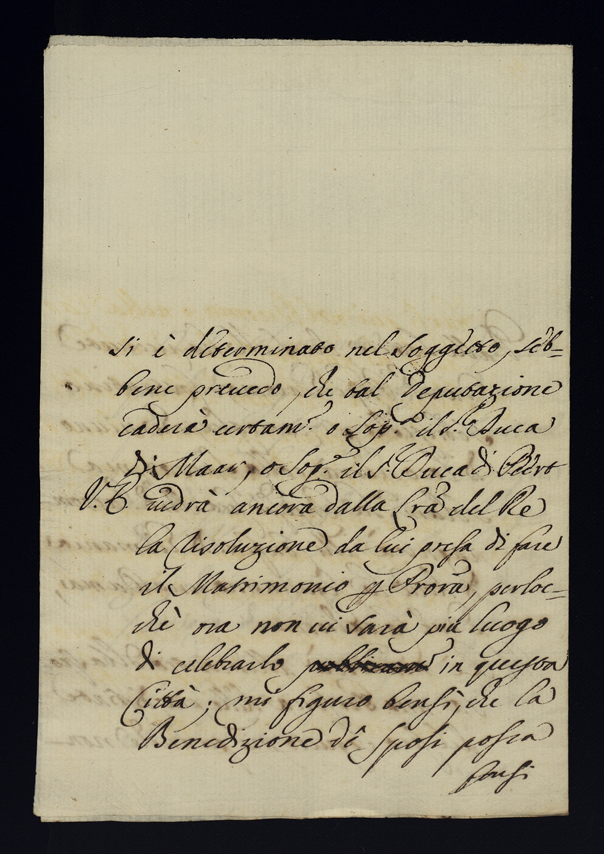 si è determinato nel Soggetto, seb=
bene prevedo, che tal Deputazione
caderà certam.e o sop.a il S.r Duca
di o sop.a il S.r Duca di
V. E. vedrà ancora dalla del Re
la risoluzione da lui presa di fare
il Matrimonio p Procra, perloc=
chè ora non vi sarà più luogo
di celebrarlo in questa
Città; mi figuro bensì, che la
Benedizione dè Sposi possa